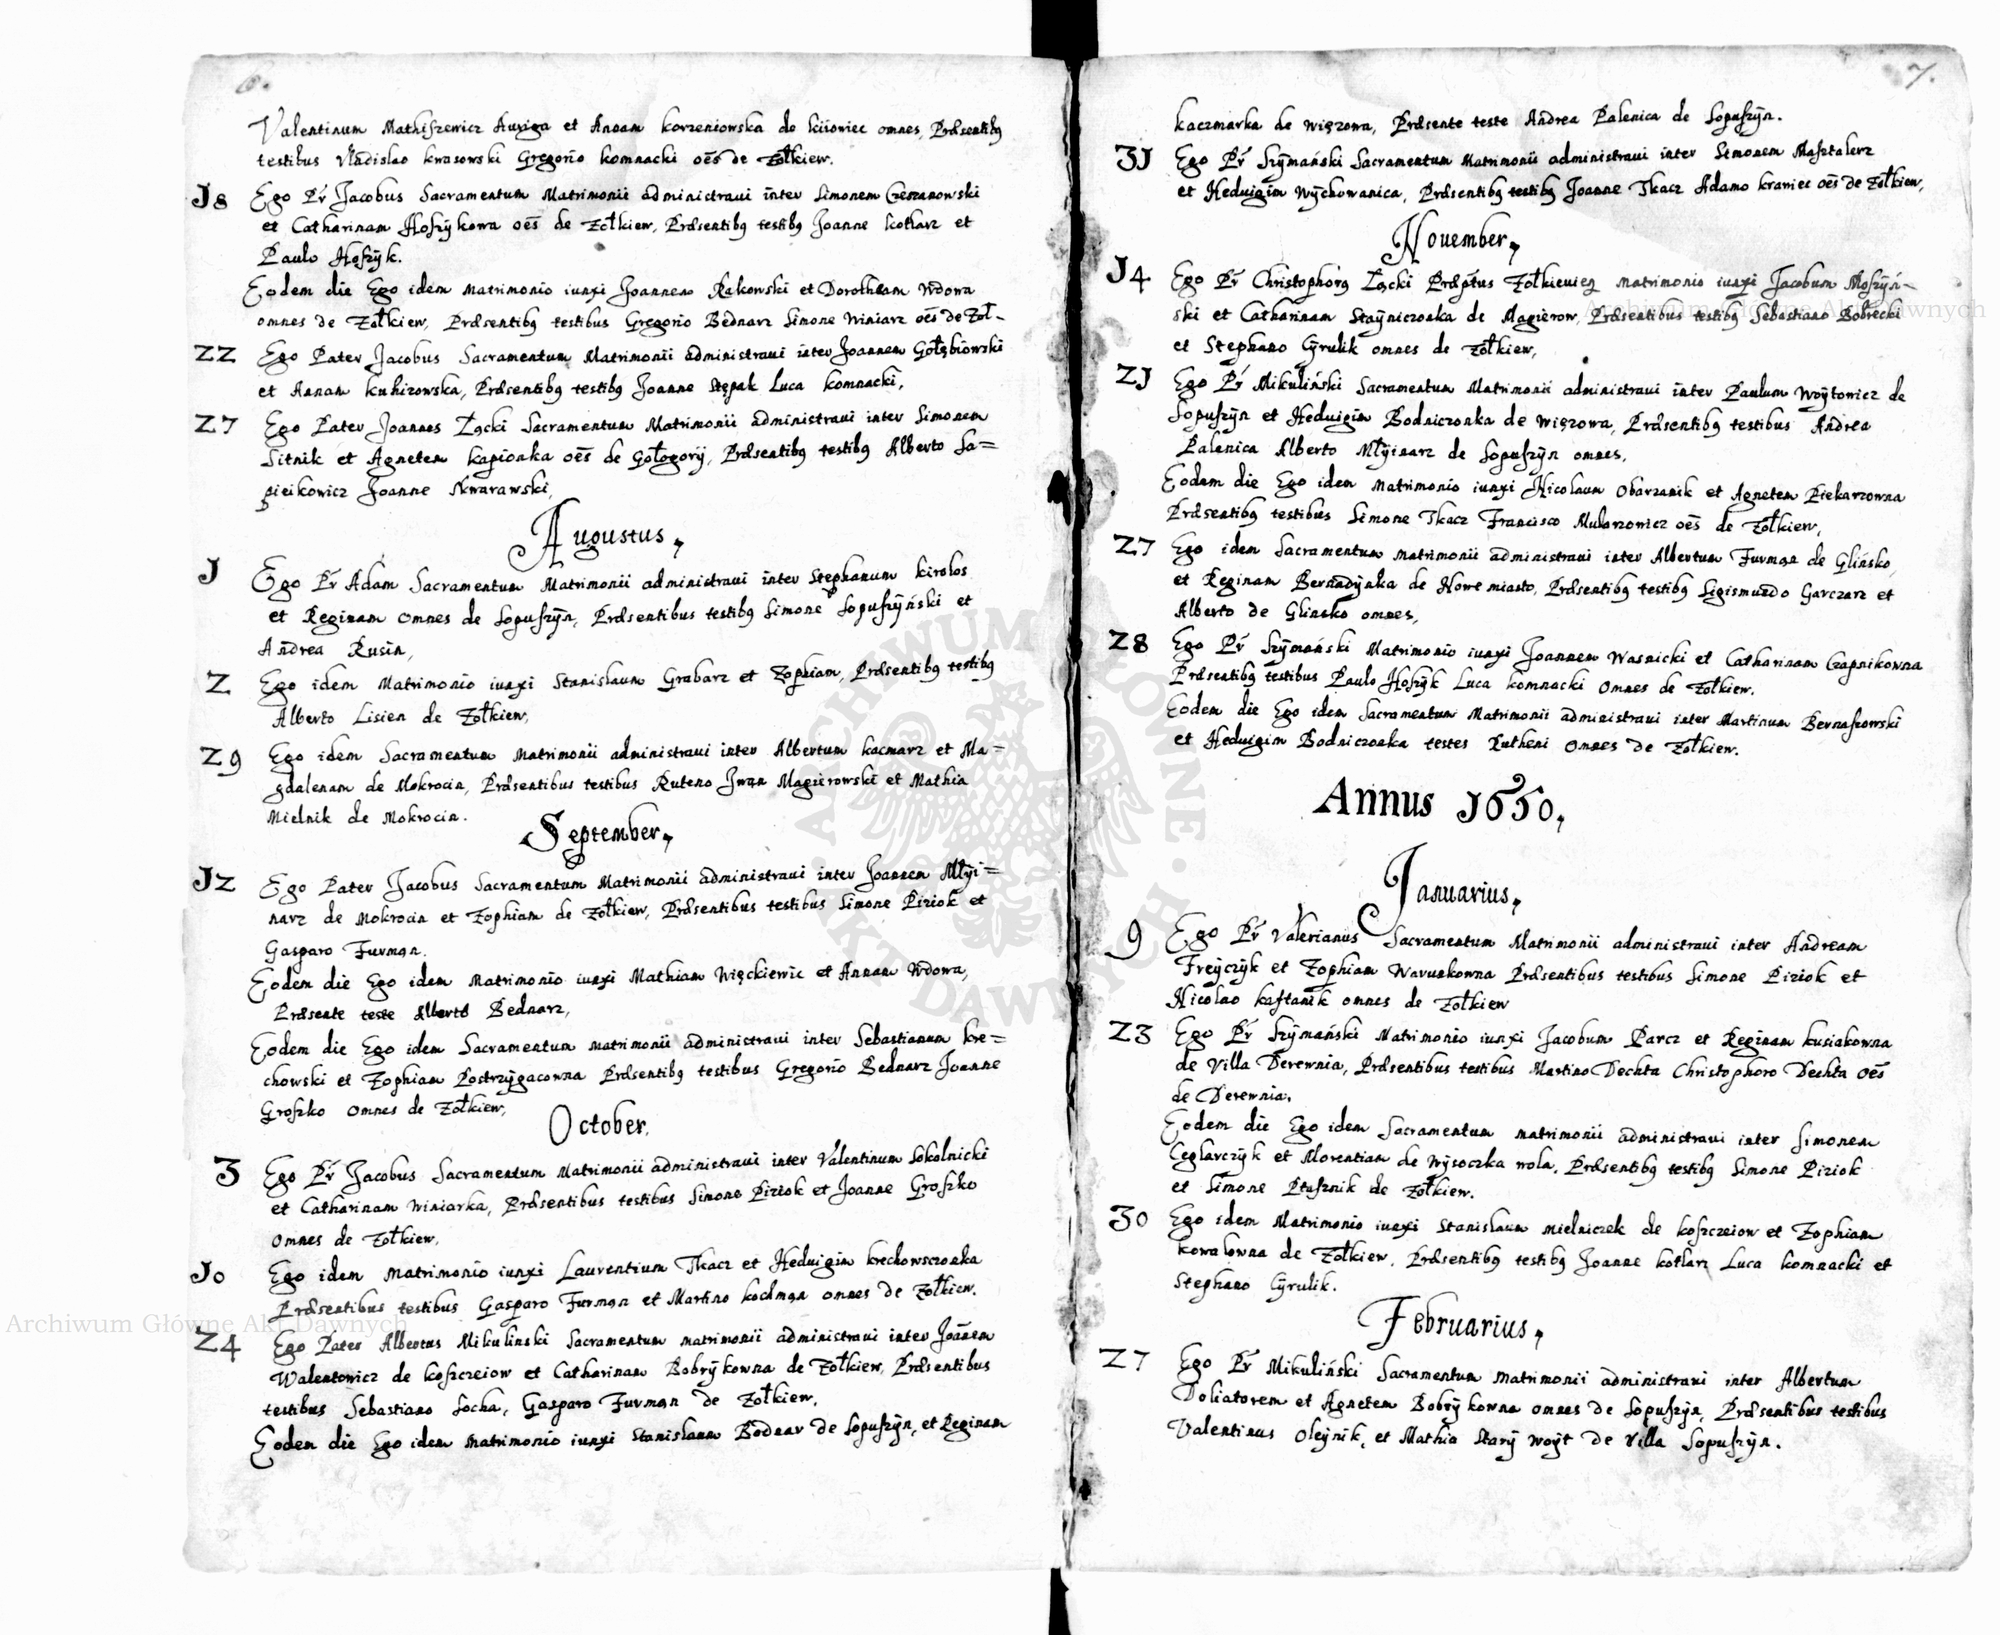 6.
Valentinum Mathiszewicz Auriga et Annam korzeniowska de kiiowiec omnes, Præsentibꝫ
testibus Vladislao kwasowski Gregorio komnacki oēs de Żołkiew.
J8 Ego Pr̃ Jacobus Sacramentum Matrimonii administraui inter Simonem Czeszanowski
et Catharinam Hoszykowa oēs de Żołkiew, Præsentibꝫ testibꝫ Joanne kotlarz et
Paulo Hoszÿk.
Eodem die Ego idem Matrimonio iunxi Joannem Rakowski et Dorotheam Wdowa
omnes de Żołkiew, Præsentibꝫ testibus Gregorio Bednarz Simone Winiarz oēs de Żoł-
ZZ Ego Pater Jacobus Sacramentum Matrimonii administraui inter Joannem Gołębiowski
et Annam kuhizowska, Præsentibꝫ testibꝫ Joanne Stępak Luca komnacki,
Z7 Ego Pater Joannes Łącki Sacramentum Matrimonii administraui inter Simonem
Sitnik et Agnetem kapionka oēs de Gołogory, Præsentibꝫ testibꝫ Alberto Sa=
pieikowicz Joanne Skwarawski,
Augustus,
J Ego Pr̃ Adam Sacramentum Matrimonii administraui inter Stephanum kirolos
et Reginam omnes de Łopuszÿn, Præsentibus testibꝫ Simone Łopuszÿński et
Andrea Rusin,
Z Ego idem Matrimonio iunxi Stanislaum Grabarz et Zophiam, Præsentibꝫ testibꝫ
Alberto Lisien de Żołkiew,
Z9 Ego idem Sacramentum Matrimonii administraui inter Albertum kacmarz et Ma=
gdalenam de Mokrocin, Præsentibus testibus Ruteno Jwan Magierowski et Mathia
Mielnik de Mokrocin.
September,
JZ Ego Pater Jacobus Sacramentum Matrimonii administraui inter Joannem Młÿi=
narz de Mokrocin et Zophiam de Żołkiew, Præsentibus testibus Simone Piziok et
Gasparo Furman.
Eodem die Ego idem Matrimonio iunxi Mathiam Więckiewic et Annam Wdowa,
Præsente teste Alberto Bednarz,
Eodem die Ego idem Sacramentum matrimonii administraui inter Sebastianum kre=
chowski et Zophiam Postrzÿgacowna Præsentibꝫ testibus Gregorio Bednarz Joanne
Groszko omnes de Żołkiew,
October.
3 Ego Pr̃ Jacobus Sacramentum Matrimonii administraui inter Valentinum Sokolnicki
et Catharinam Winiarka, Præsentibus testibus Simone Piziok et Joanne Groszko
omnes de Żołkiew,
Jo Ego idem Matrimonio iunxi Laurentium Tkacz et Heduigim krechowsczonka
Præsentibus testibus Gasparo Furman et Martino kochman omnes de Żołkiew.
Z4 Ego Pater Albertus Mikulinski Sacramentum matrimonii administraui inter Joãnem
Walentowicz de koszczeiow et Catharinam Bobrÿkowna de Żołkiew, Præsentibus
testibus Sebastiano Socha, Gasparo Furman de Żołkiew.
Eodem die Ego idem matrimonio iunxi Stanislaum Bodnar de Łopuszÿn, et Reginam
7.
kaczmarka de Więzowa, Præsente teste Andrea Palenica de Łopuszÿn.
3J Ego Pr̃ Szÿmański Sacramentum Matrimonii administraui inter Simonem Masztalerz
et Heduigim Wÿchowanica, Præsentibꝫ testibꝫ Joanne Tkacz Adamo krawiec oēs de Żołkiew,
November,
J4 Ego Pr̃ Christophorꝫ Łącki Præptus Żołkieuieꝫ matrimonio iunxi Jacobum Moszÿń-
ski et Catharinam Staÿniczonka de Magierow, Præsentibus testibꝫ Sebastiano Bobrecki
et Stephano Cÿrulik omnes de Żołkiew,
ZJ Ego Pr̃ Mikuliński Sacramentum Matrimonii administraui inter Paulum Woÿtowicz de
Łopuszÿn et Heduigim Bodniczonka de Więzowa, Præsentibꝫ testibus Andrea
Palenica Alberto Młÿinarz de Łopuszÿn omnes,
Eodem die Ego idem Matrimonio iunxi Nicolaum Obarzanik et Agnetem Piekarzowna
Præsentibꝫ testibus Simone Tkacz Francisco Mularzowicz oēs de Żołkiew,
Z7 Ego idem Sacramentum matrimonii administraui inter Albertum Furman de Glińsko,
et Reginam Bernadÿnka de Nowe miasto, Præsentibꝫ testibꝫ Sigismundo Garczarz et
Alberto de Glinsko omnes,
Z8 Ego Pr̃ Szÿmański Matrimonio iunxi Joannem Wasnicki et Catharinam Czapnikowna
Præsentibꝫ testibus Paulo Hoszÿk Luca komnacki omnes de Żołkiew.
Eodem die Ego idem Sacramentum Matrimonii administraui inter Martinum Bernaszowski
et Heduigim Bodniczonka testes Rutheni omnes de Żołkiew.
Annus J650,
Januarius,
9 Ego Pr̃ Valerianus Sacramentum Matrimonii administraui inter Andream
Freÿczÿk et Zophiam Wawnkowna Præsentibus testibus Simone Piziok et
Nicolao kaftanik omnes de Żołkiew
Z3 Ego Pr̃ Szÿmański Matrimonio iunxi Jacobum Parcz et Reginam kusiakowna
de Villa Derewnia, Præsentibus testibus Martino Dechta Christophoro Dechta oēs
de Derewnia.
Eodem die Ego idem Sacramentum matrimonii administraui inter Simonem
Ceglarczÿk et Florentiam de Wÿsoczka wola, Præsentibꝫ testibꝫ Simone Piziok
et Simone Ptusznik de Żołkiew.
30 Ego idem Matrimonio iunxi Stanislaum mielniczek de koszczeiow et Zophiam
kowalowna de Żołkiew, Præsentibꝫ testibꝫ Joanne kotlarz Luca komnacki et
Stephano Cÿrulik.
Februarius,
Z7 Ego Pr̃ Mikuliński Sacramentum matrimonii administraui inter Albertum
Doliatorem et Agnetem Bobrÿkowna omnes de Łopuszÿn, Præsentibus testibus
Valentinus Oleÿnik, et Mathia Starÿ woÿt de Villa Łopuszÿn.
Archiwum Główne Akt Dawnych
Archiwum Główne Akt Dawnych
ARCHIWUM GŁÓWNE AKT DAWNYCH